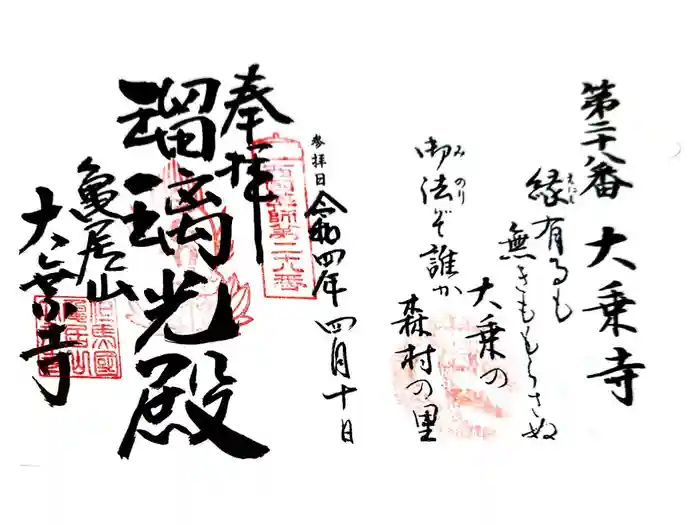 第二十八番 大乗寺
縁有るも
えにし
無きももらさぬ
大乗の
御法ぞ誰か
みのり
森村の里
参拝日 令和四年 四月十日
奉拝
瑠璃光殿
亀居山
大乗寺